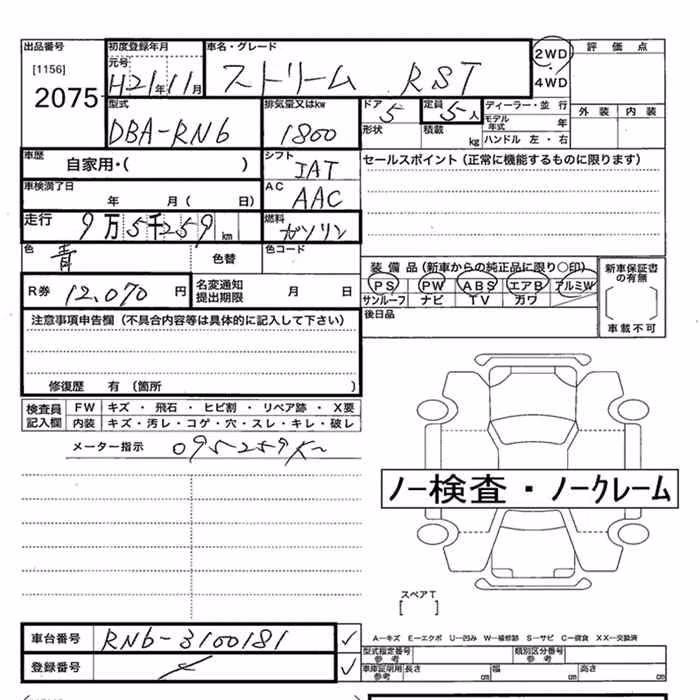 出品番号 初度登録年月 車名・グレード 2WD 評価点
[1156] 元号 4WD
2075 H21年11月 ストリーム RST 外装 内装
型式 排気量又はkw ドア 定員 ディーラー・並行
DBA-RN6 1800 5 5人 モデル年式 年
形状 積載 kg ハンドル 左・右
車歴 自家用・( ) シフト IAT セールスポイント (正常に機能するものに限ります)
車検満了日 年 月( 日) AC AAC
走行 9万5千259km 燃料 ガソリン
色 青 色替 色コード
装備品 (新車からの純正品に限り○印) 新車保証書の有無
R券 12,070円 名変通知提出期限 月 日 PS PW ABS エアB アルミW
サンルーフ ナビ TV カワ
注意事項申告欄 (不具合内容等は具体的に記入して下さい) 後日品 車載不可
修復歴 有 (箇所 )
検査員記入欄 FW キズ・飛石・ヒビ割・リペア跡・X要
内装 キズ・汚レ・コゲ・穴・スレ・キレ・破レ
メーター指示 095259K
ノー検査・ノークレーム
スペアT
[ ]
車台番号 RN6-3100181 ✓ A－キズ E－エクボ U－凹み W－補修跡 S－サビ C－腐食 XX－交換済
型式指定番号 参考 類別区分番号 参考
登録番号 ✓ 車庫証明用参考 長さ cm 幅 cm 高さ cm